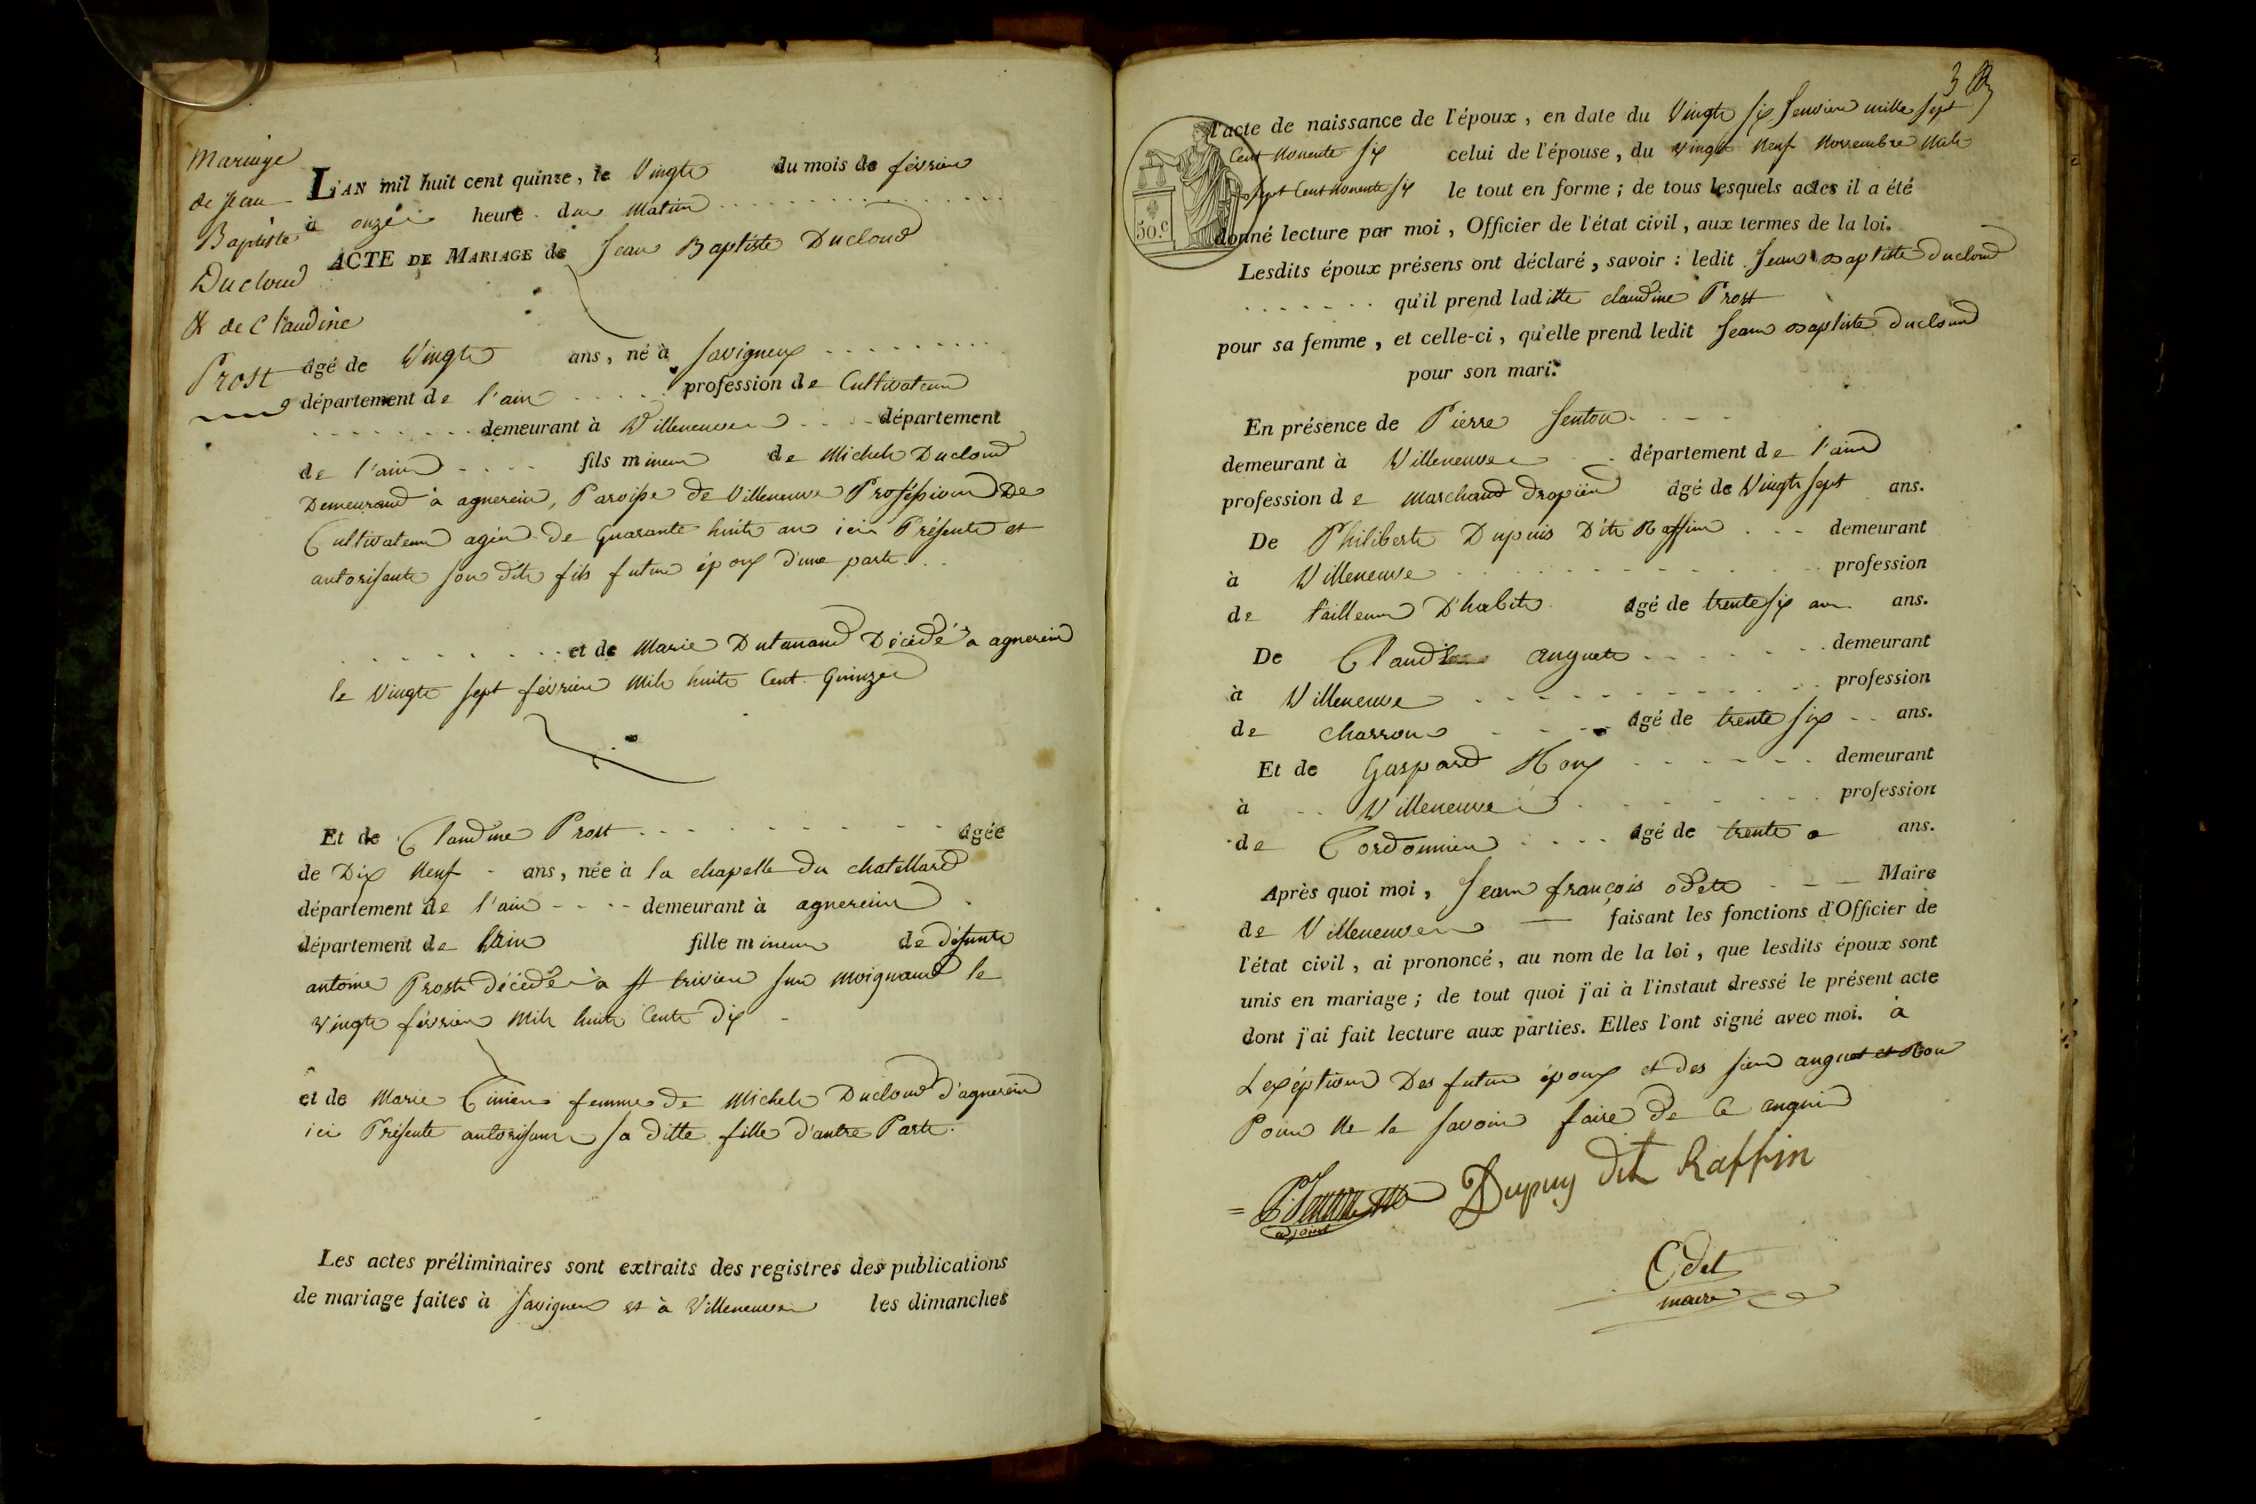 Mariage
de Jean
Baptiste
Ducloud
& de Claudine
Prost
L'AN mil huit cent quinze, le Vingt du mois de février
à onze heure du Matin
ACTE DE MARIAGE de Jean Baptiste Ducloud
âgé de Vingt ans, né à Savigneux
département de l'ain profession de Cultivateur
demeurant à Villeneuve département
de l'ain fils mineur de Michel Ducloud
Demeurand à agnerein, Paroisse de Villeneuve Proféssion De
Cultivateur agér de quarante huit an ici Présente et
autorisante son dit fils futur époux d'une parte
et de Marie Dutanand Décédé à agnerein
le Vingt sept février Mil huit Cent Quinze
Et de Claudine Prost âgée
de Dix Neuf ans, née à la chapelle du chatellard
département de l'ain demeurant à agnerein
département de l'ain fille mineur de défunte
antoine Prost décédé à st trivier sur moignand le
vingt février Mil huit Cent Dix
et de Marie femme de Michel Ducloud d'agnerein
ici Présente autorisant sa ditte fille d'autre Parte.
Les actes préliminaires sont extraits des registres des publications
de mariage faites à Savigneux et à Villeneuve les dimanches
3
l'acte de naissance de l'époux, en date du Vingt six Janvier mille sept
Cent Nonente six celui de l'épouse, du vingt Neuf Novembre Mile
Sept Cent Nonente six le tout en forme ; de tous lesquels actes il a été
50.c
donné lecture par moi, Officier de l'état civil, aux termes de la loi.
Lesdits époux présens ont déclaré, savoir : ledit Jean Baptiste Ducloud
qu'il prend laditte claudine Prost
pour sa femme, et celle-ci, qu'elle prend ledit Jean Baptiste Ducloud
pour son mari.
En présence de Pierre
demeurant à Villeneuve département de l'ain
profession de Marchand drapier âgé de Vingt sept ans.
De Philibert Dupuis Dit Raffin demeurant
à Villeneuve profession
de tailleur D'habit âgé de trente six an ans.
De Claude auguet demeurant
à Villeneuve profession
de charron âgé de trente six ans.
Et de Gaspard Roux demeurant
à Villeneuve profession
de Cordonnier âgé de trente ans.
Après quoi moi, Jean françois odet Maire
de Villeneuve faisant les fonctions d'Officier de
l'état civil, ai prononcé, au nom de la loi, que lesdits époux sont
unis en mariage ; de tout quoi j'ai à l'instaut dressé le présent acte
dont j'ai fait lecture aux parties. Elles l'ont signé avec moi. à
Lexéption Des futur époux et des sieur auguet et Rou
Pour Ne le savoir faire de ce anquis
adjoint
Dupuy dit Raffin
Odet
maire